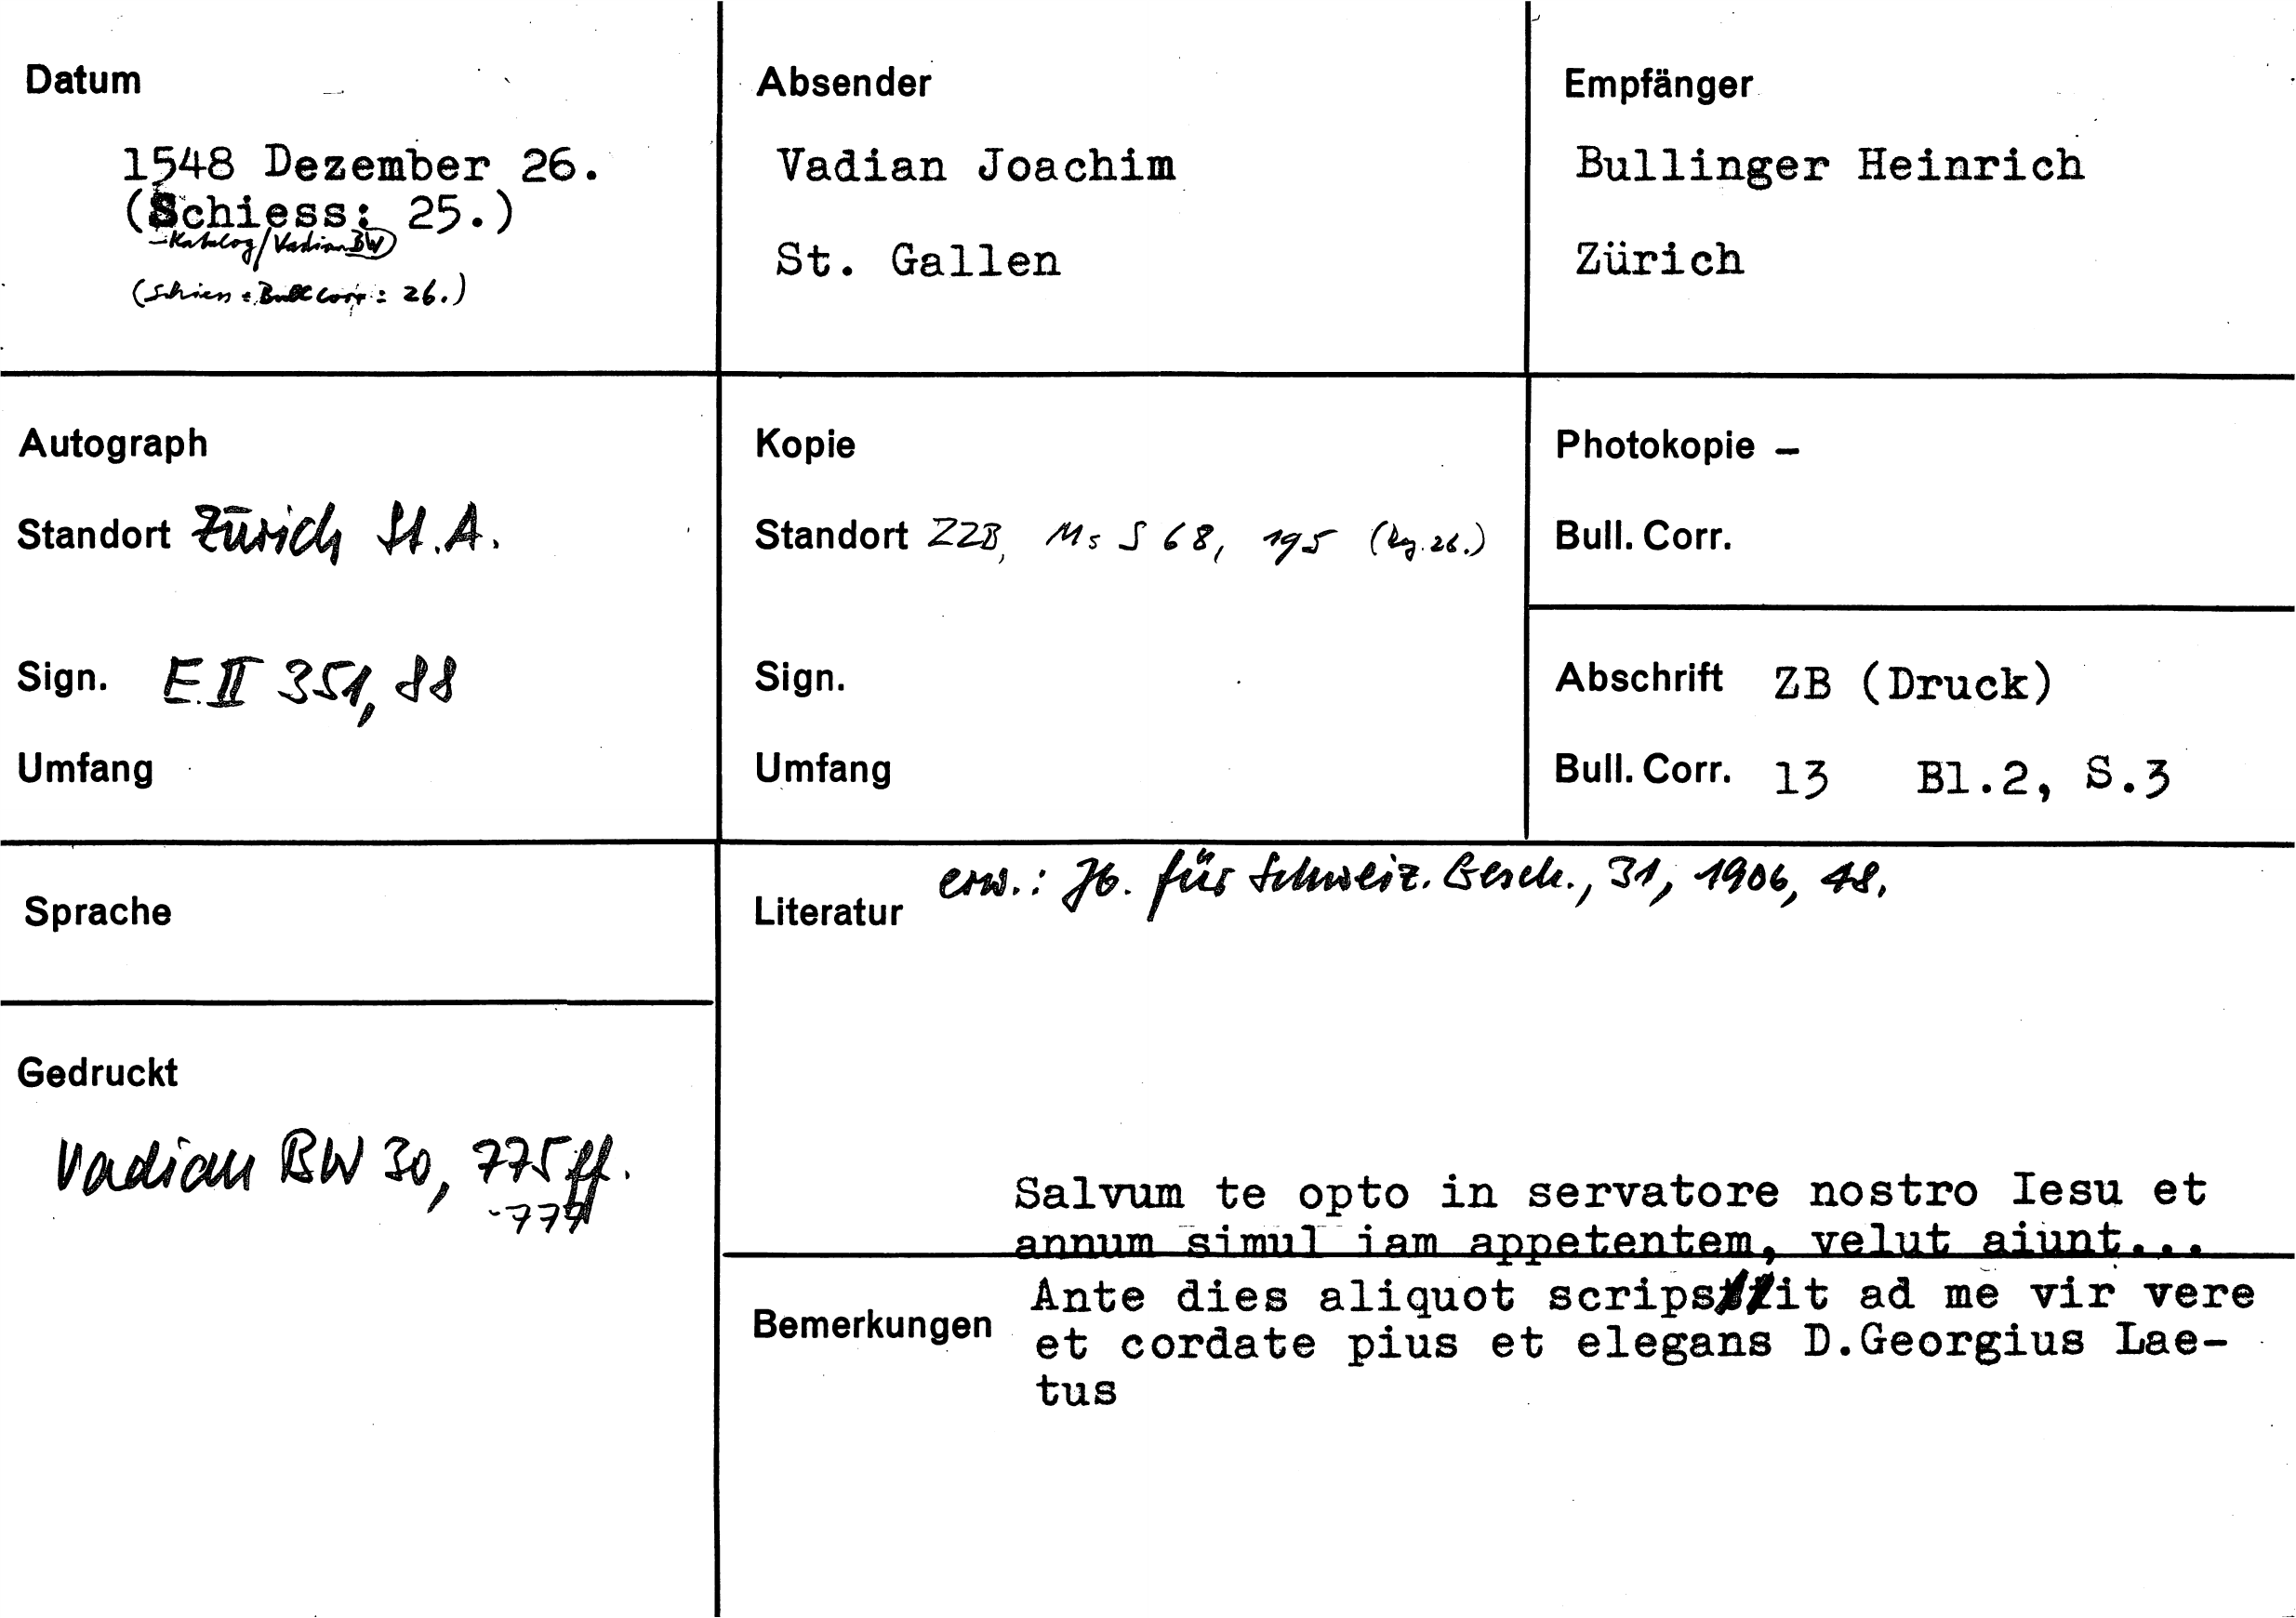 Datum
1548 Dezember 26.
(Schiess: 25.)
-Katalog/Vadian BW)
(Schiess = Bull Corr: 26.)
Absender
Vadian Joachim
St. Gallen
Empfänger
Bullinger Heinrich
Zürich
Autograph
Standort Zürich St.A.
Sign. E.II 351, 88
Umfang
Kopie
Standort ZZB, Ms S 68, 195 (26.)
Sign.
Umfang
Photokopie -
Bull. Corr.
Abschrift ZB (Druck)
Bull. Corr. 13 Bl.2, S.3
Sprache
Gedruckt
Vadian BW 30, 775ff.
-777
Literatur erw.: Jb. für Schweiz. Gesch., 31, 1906, 48.
Salvum te opto in servatore nostro Iesu et
annum simul iam appetentem, velut aiunt...
Bemerkungen
Ante dies aliquot scripsit ad me vir vere
et cordate pius et elegans D.Georgius Lae-
tus